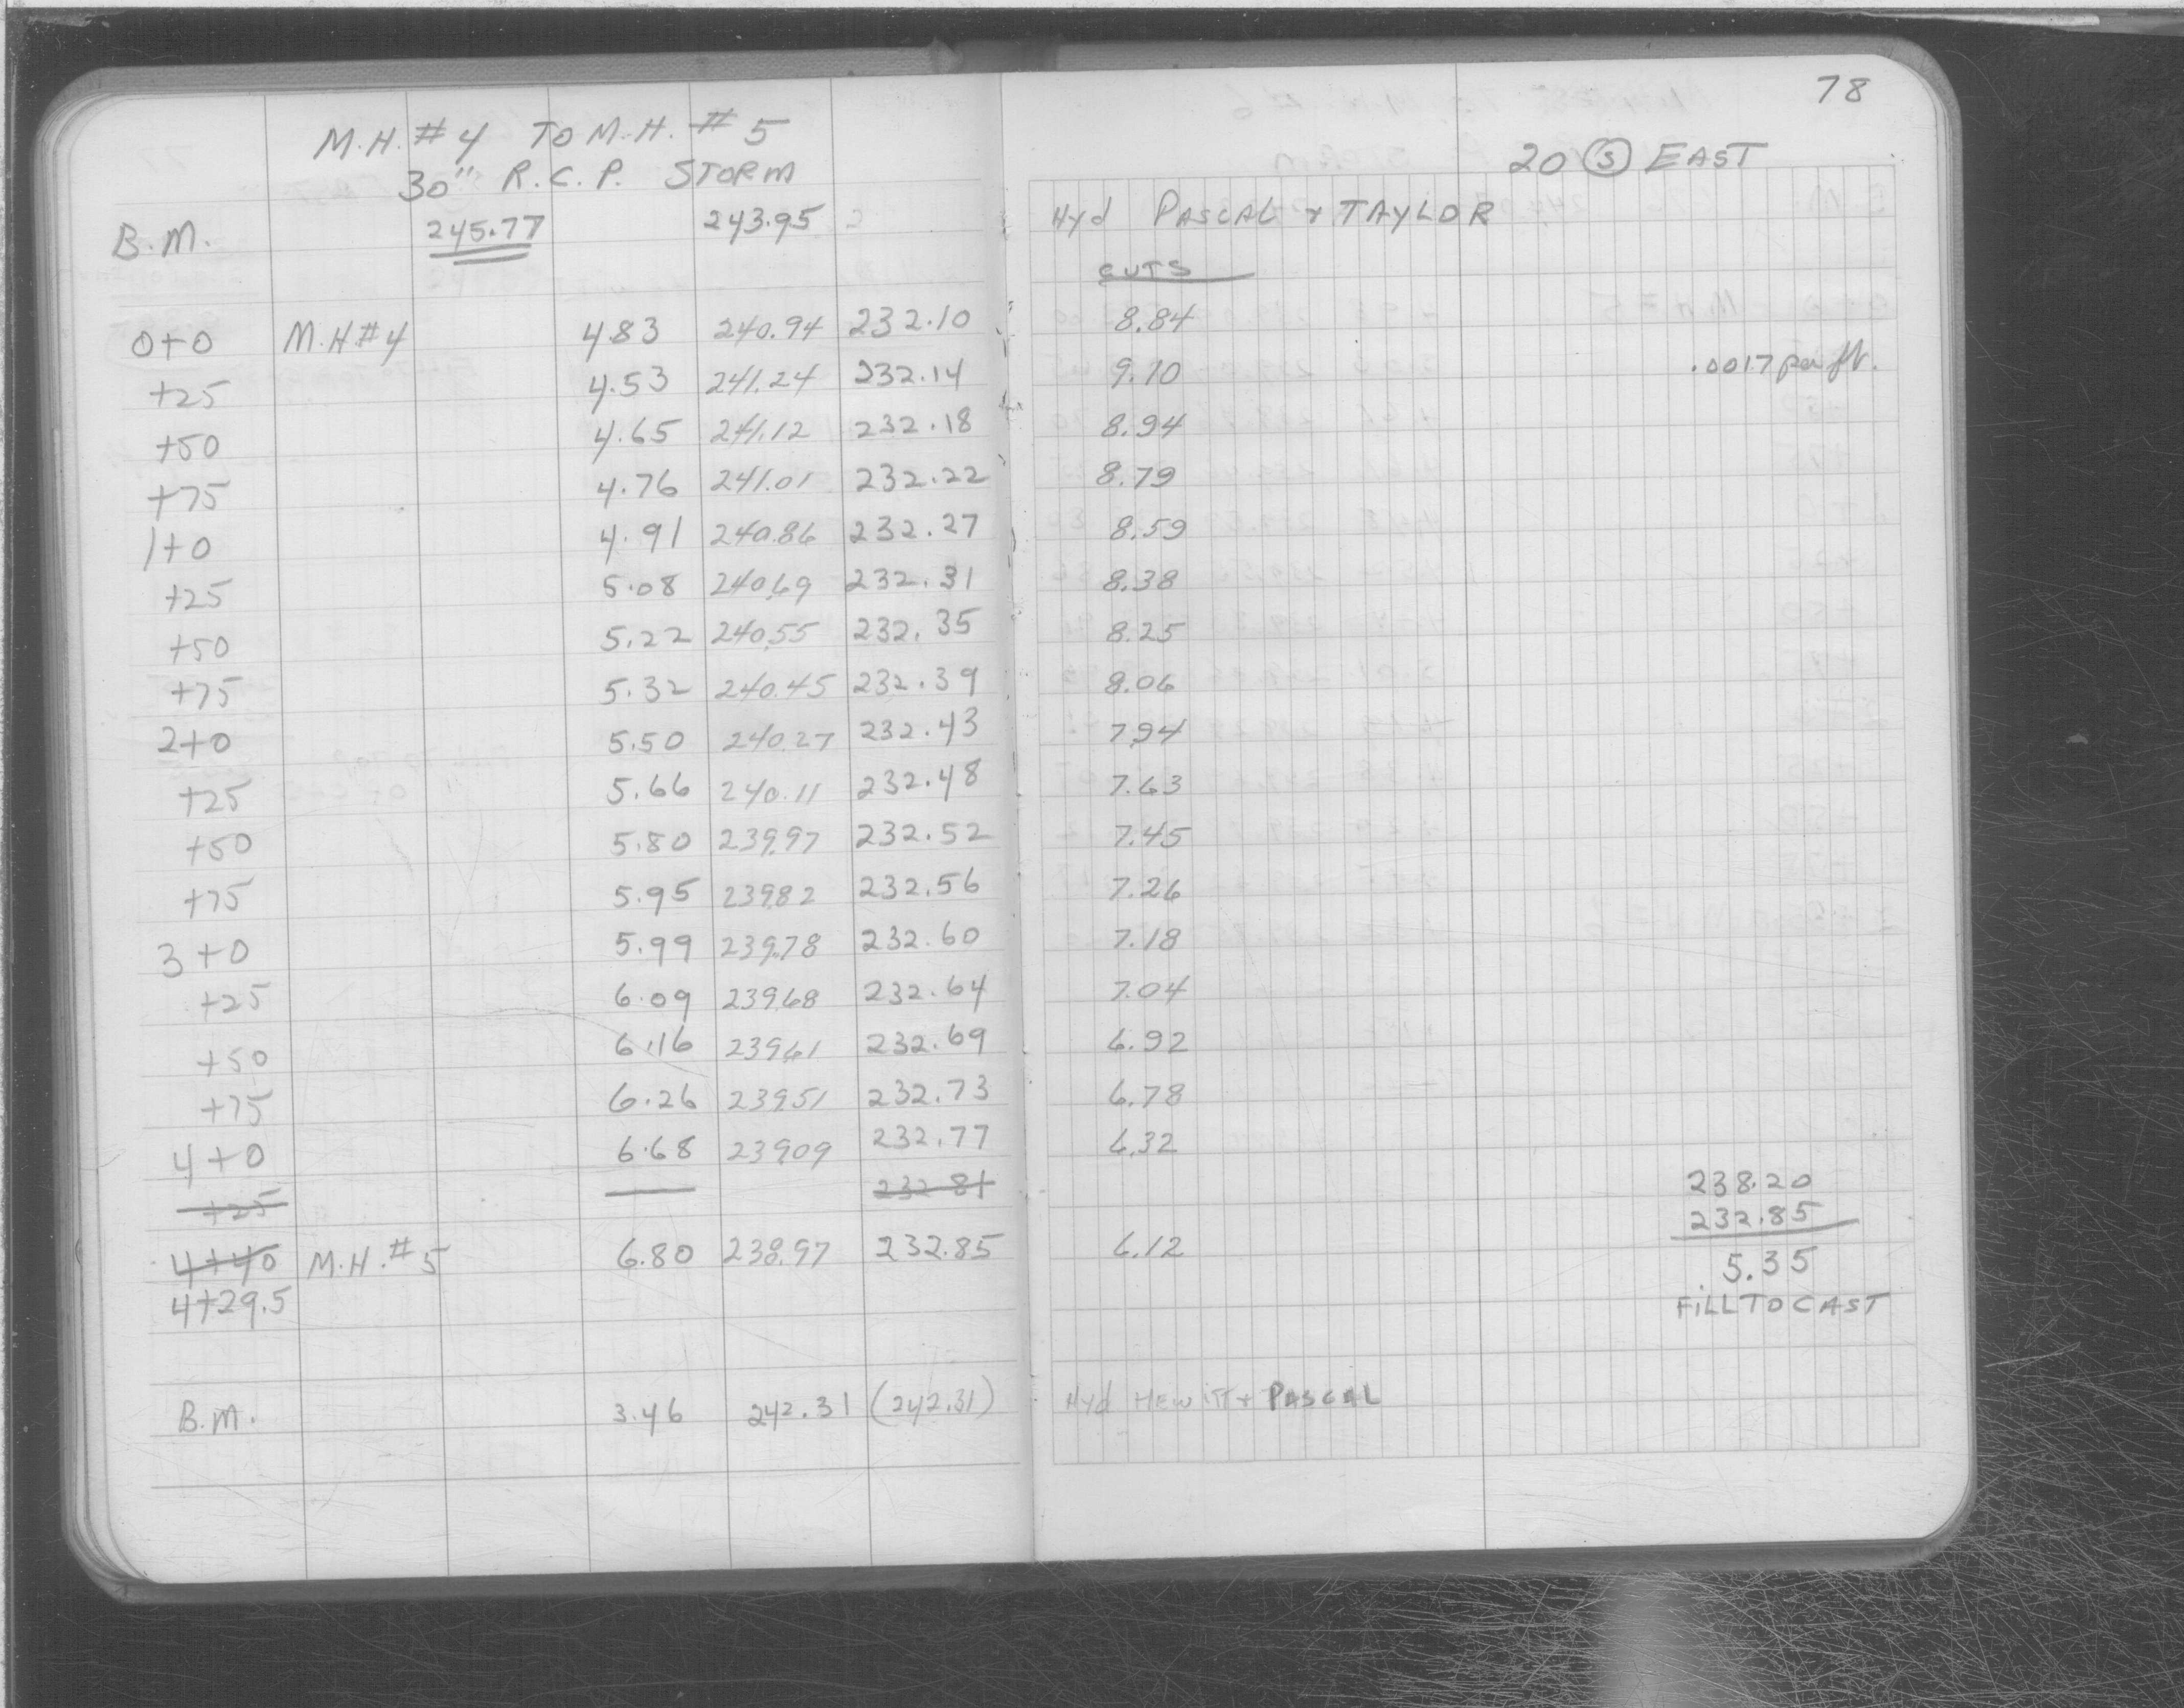 78
M.H. # 4 TO M.H. # 5
30" R.C.P. STORM
20 (S) EAST
B.M. 245.77 243.95 Hyd PASCAL + TAYLOR
CUTS
0+0 M.H.#4 4.83 240.94 232.10 8.84
+25 4.53 241.24 232.14 9.10 .0017 per ft.
+50 4.65 241.12 232.18 8.94
+75 4.76 241.01 232.22 8.79
1+0 4.91 240.86 232.27 8.59
+25 5.08 240.69 232.31 8.38
+50 5.22 240.55 232.35 8.25
+75 5.32 240.45 232.39 8.06
2+0 5.50 240.27 232.43 7.94
+25 5.66 240.11 232.48 7.63
+50 5.80 239.97 232.52 7.45
+75 5.95 239.82 232.56 7.26
3+0 5.99 239.78 232.60 7.18
+25 6.09 239.68 232.64 7.04
+50 6.16 239.61 232.69 6.92
+75 6.26 239.51 232.73 6.78
4+0 6.68 239.09 232.77 6.32
+25 232.81
238.20
232.85
4+40 M.H.#5 6.80 238.97 232.85 6.12
5.35
4+29.5
FILL TO CAST
B.M. 3.46 242.31 (242.31) Hyd HEWITT + PASCAL